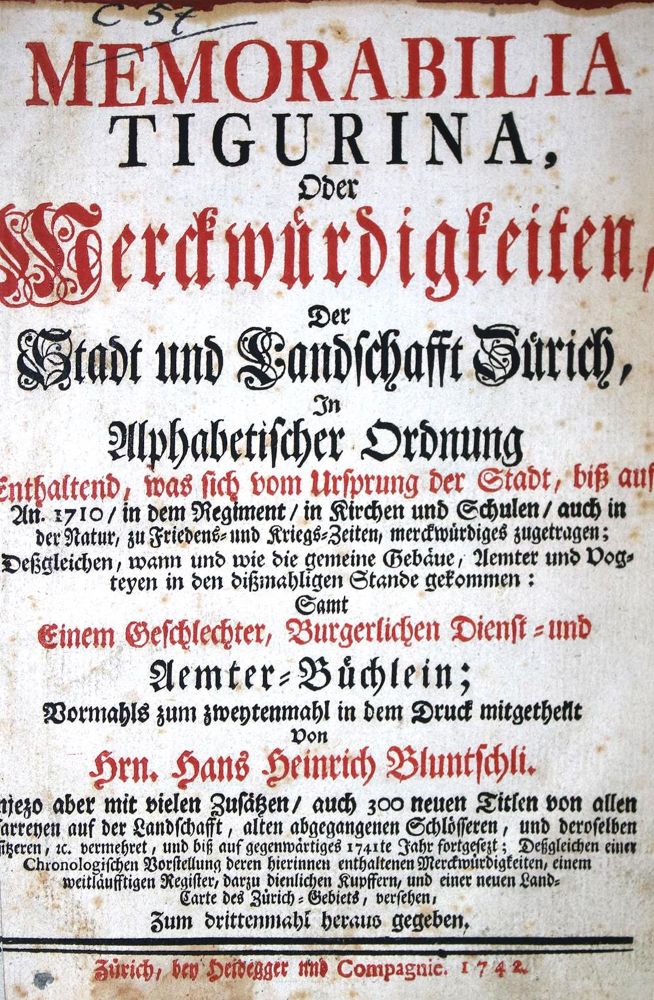 C 57
MEMORABILIA
TIGURINA,
Oder
Merckwürdigkeiten,
Der
Stadt und Landschafft Zürich,
In
Alphabetischer Ordnung
Enthaltend, was sich vom Ursprung der Stadt, biß auf
An. 1710/ in dem Regiment/ in Kirchen und Schulen/ auch in
der Natur, zu Friedens- und Kriegs-Zeiten, merckwürdiges zugetragen;
Deßgleichen, wann und wie die gemeine Gebäue, Aemter und Vog-
teyen in den dißmahligen Stande gekommen:
Samt
Einem Geschlechter, Burgerlichen Dienst- und
Aemter-Büchlein;
Vormahls zum zweytenmahl in dem Druck mitgetheilt
Von
Hrn. Hans Heinrich Bluntschli.
njezo aber mit vielen Zusätzen/ auch 300 neuen Titlen von allen
farreyen auf der Landschafft, alten abgegangenen Schlösseren, und deroselben
sitzeren, ꝛc. vermehret, und biß auf gegenwärtiges 1741te Jahr fortgesezt; Deßgleichen einer
Chronologischen Vorstellung deren hierinnen enthaltenen Merckwürdigkeiten, einem
weitläufftigen Register, darzu dienlichen Kupffern, und einer neuen Land-
Carte des Zürich-Gebiets, versehen,
Zum drittenmahl heraus gegeben.
Zürich, bey Heidegger und Compagnie. 1742.